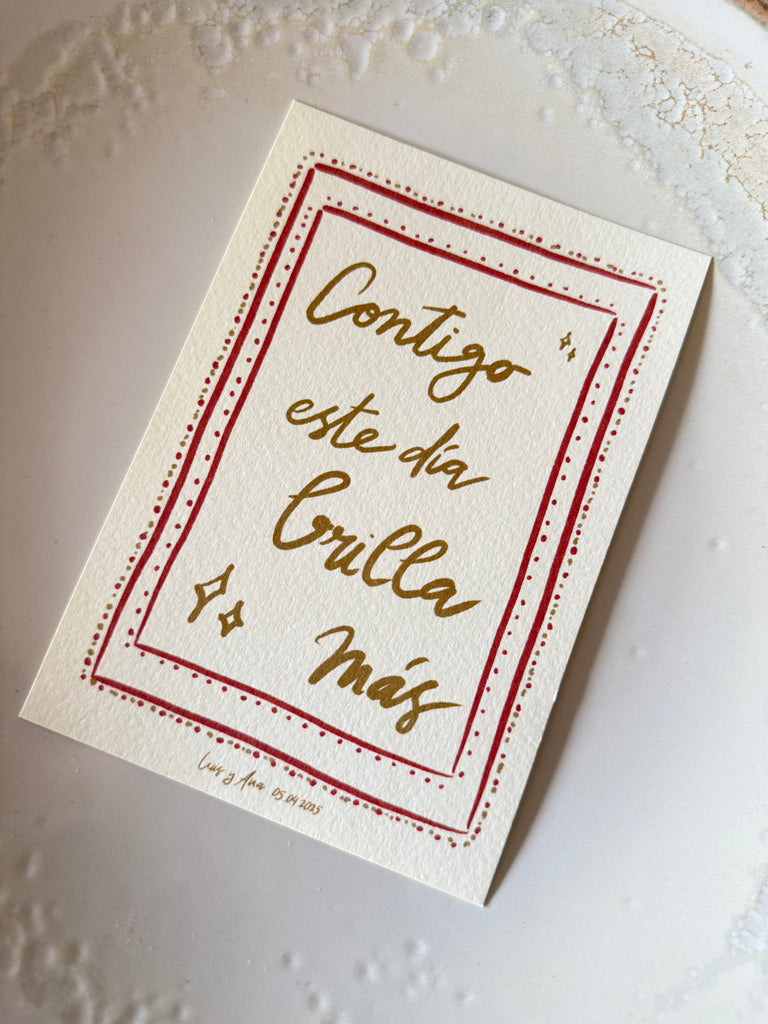 Contigo
este día
brilla
más
Luis y Ana 05 04 2025